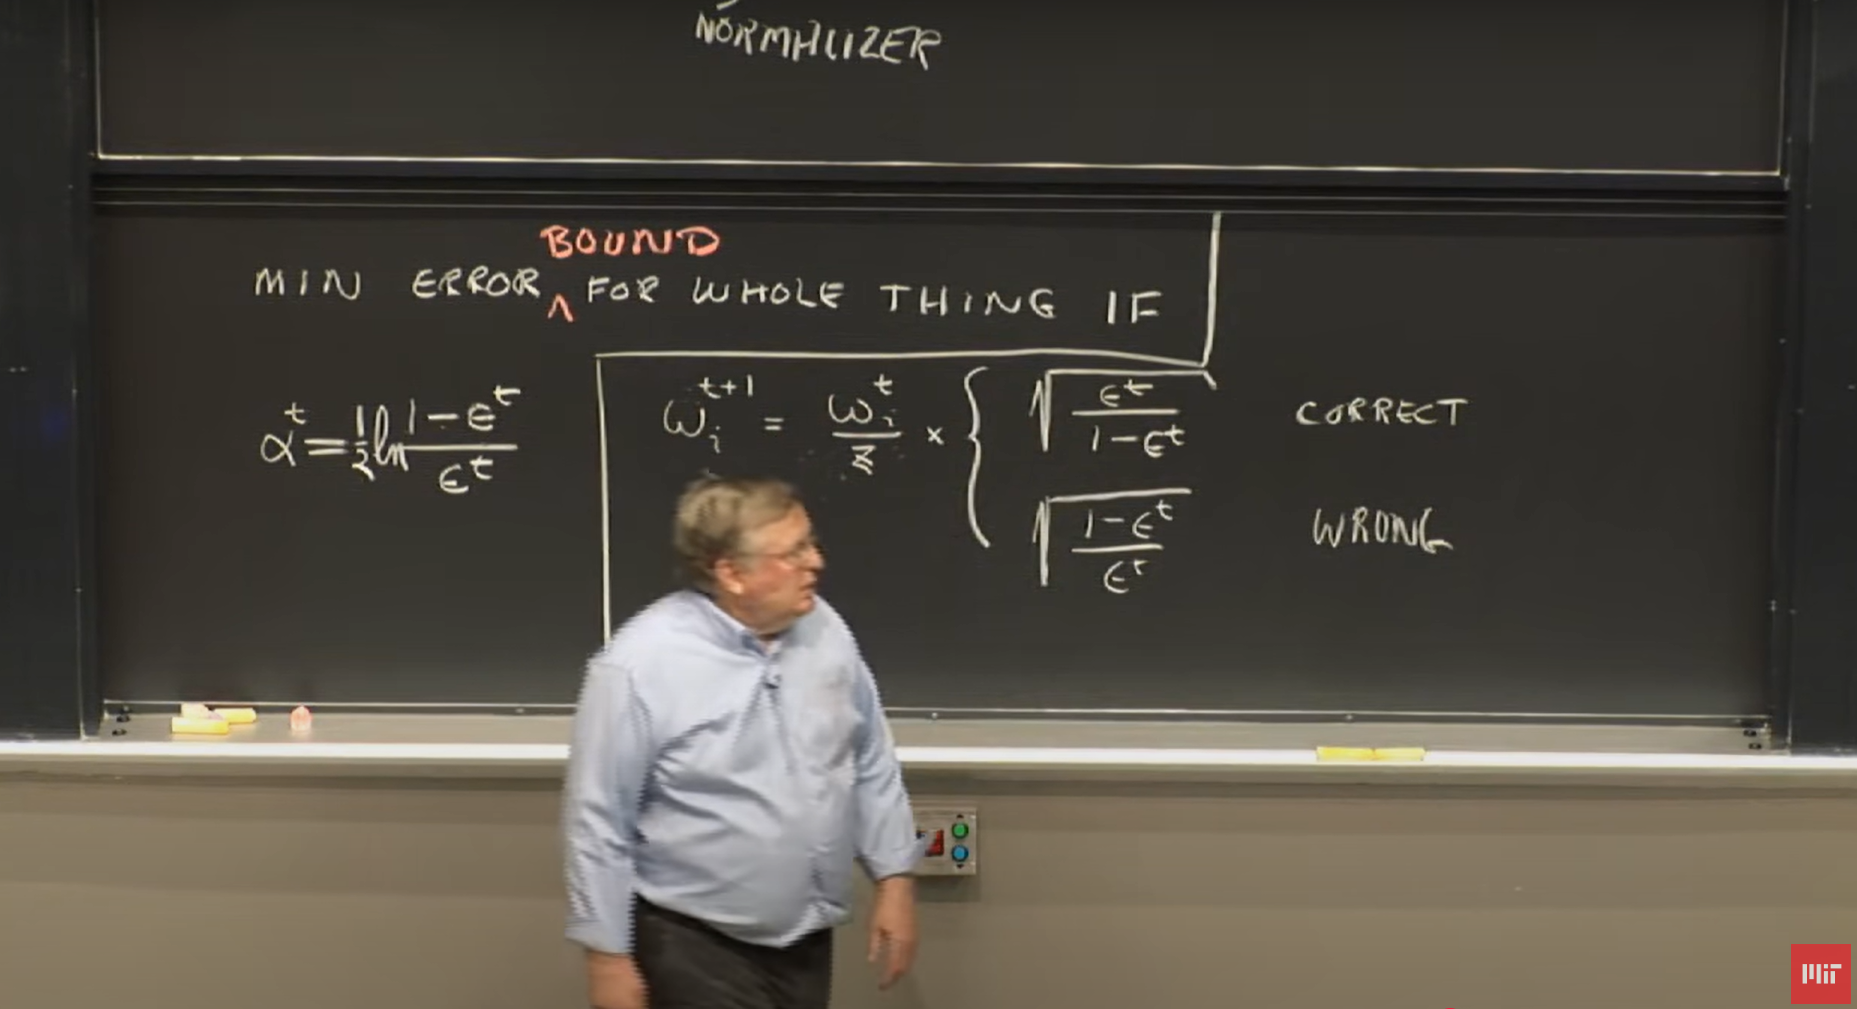 NORMALIZER
BOUND
MIN ERROR ^ FOR WHOLE THING IF
α^t = 1/2 ln (1-ϵ^t)/(ϵ^t)
w_i^{t+1} = w_i^t / z × { √(ϵ^t/(1-ϵ^t)) CORRECT
√((1-ϵ^t)/ϵ^t) WRONG
MIT